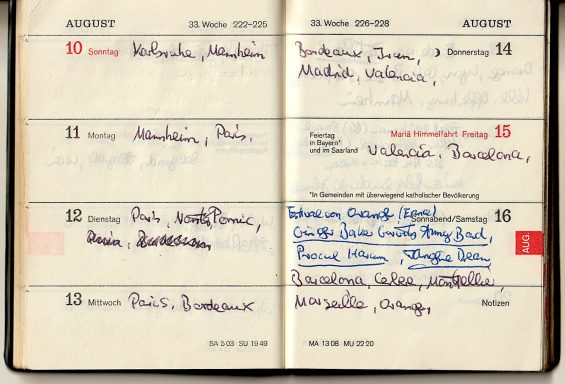 AUGUST 33. Woche 222–225
10 Sonntag Karlsruhe, Mannheim
11 Montag Mannheim, Paris.
12 Dienstag Paris, Nantes, Pornic,
Paris,
13 Mittwoch Paris, Bordeaux
SA 5 03 SU 19 49
33. Woche 226–228 AUGUST
Bordeaux, Irun, Donnerstag 14
Madrid, Valencia,
Feiertag in Bayern* und im Saarland
Mariä Himmelfahrt Freitag 15
Valencia, Barcelona,
*In Gemeinden mit überwiegend katholischer Bevölkerung
Festival von Orange
Sonnabend/Samstag 16
AUG.
Ginger Baker Army Band,
Procol Harum, Tangerine Dream
Barcelona, Montpellier,
Marseille, Orange,
Notizen
MA 13 08 MU 22 20